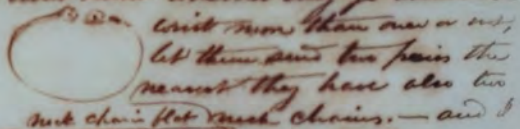 wrist more than once or not,
let them send two pairs the
nearest they have also two
neck chain flat neck chains. — and